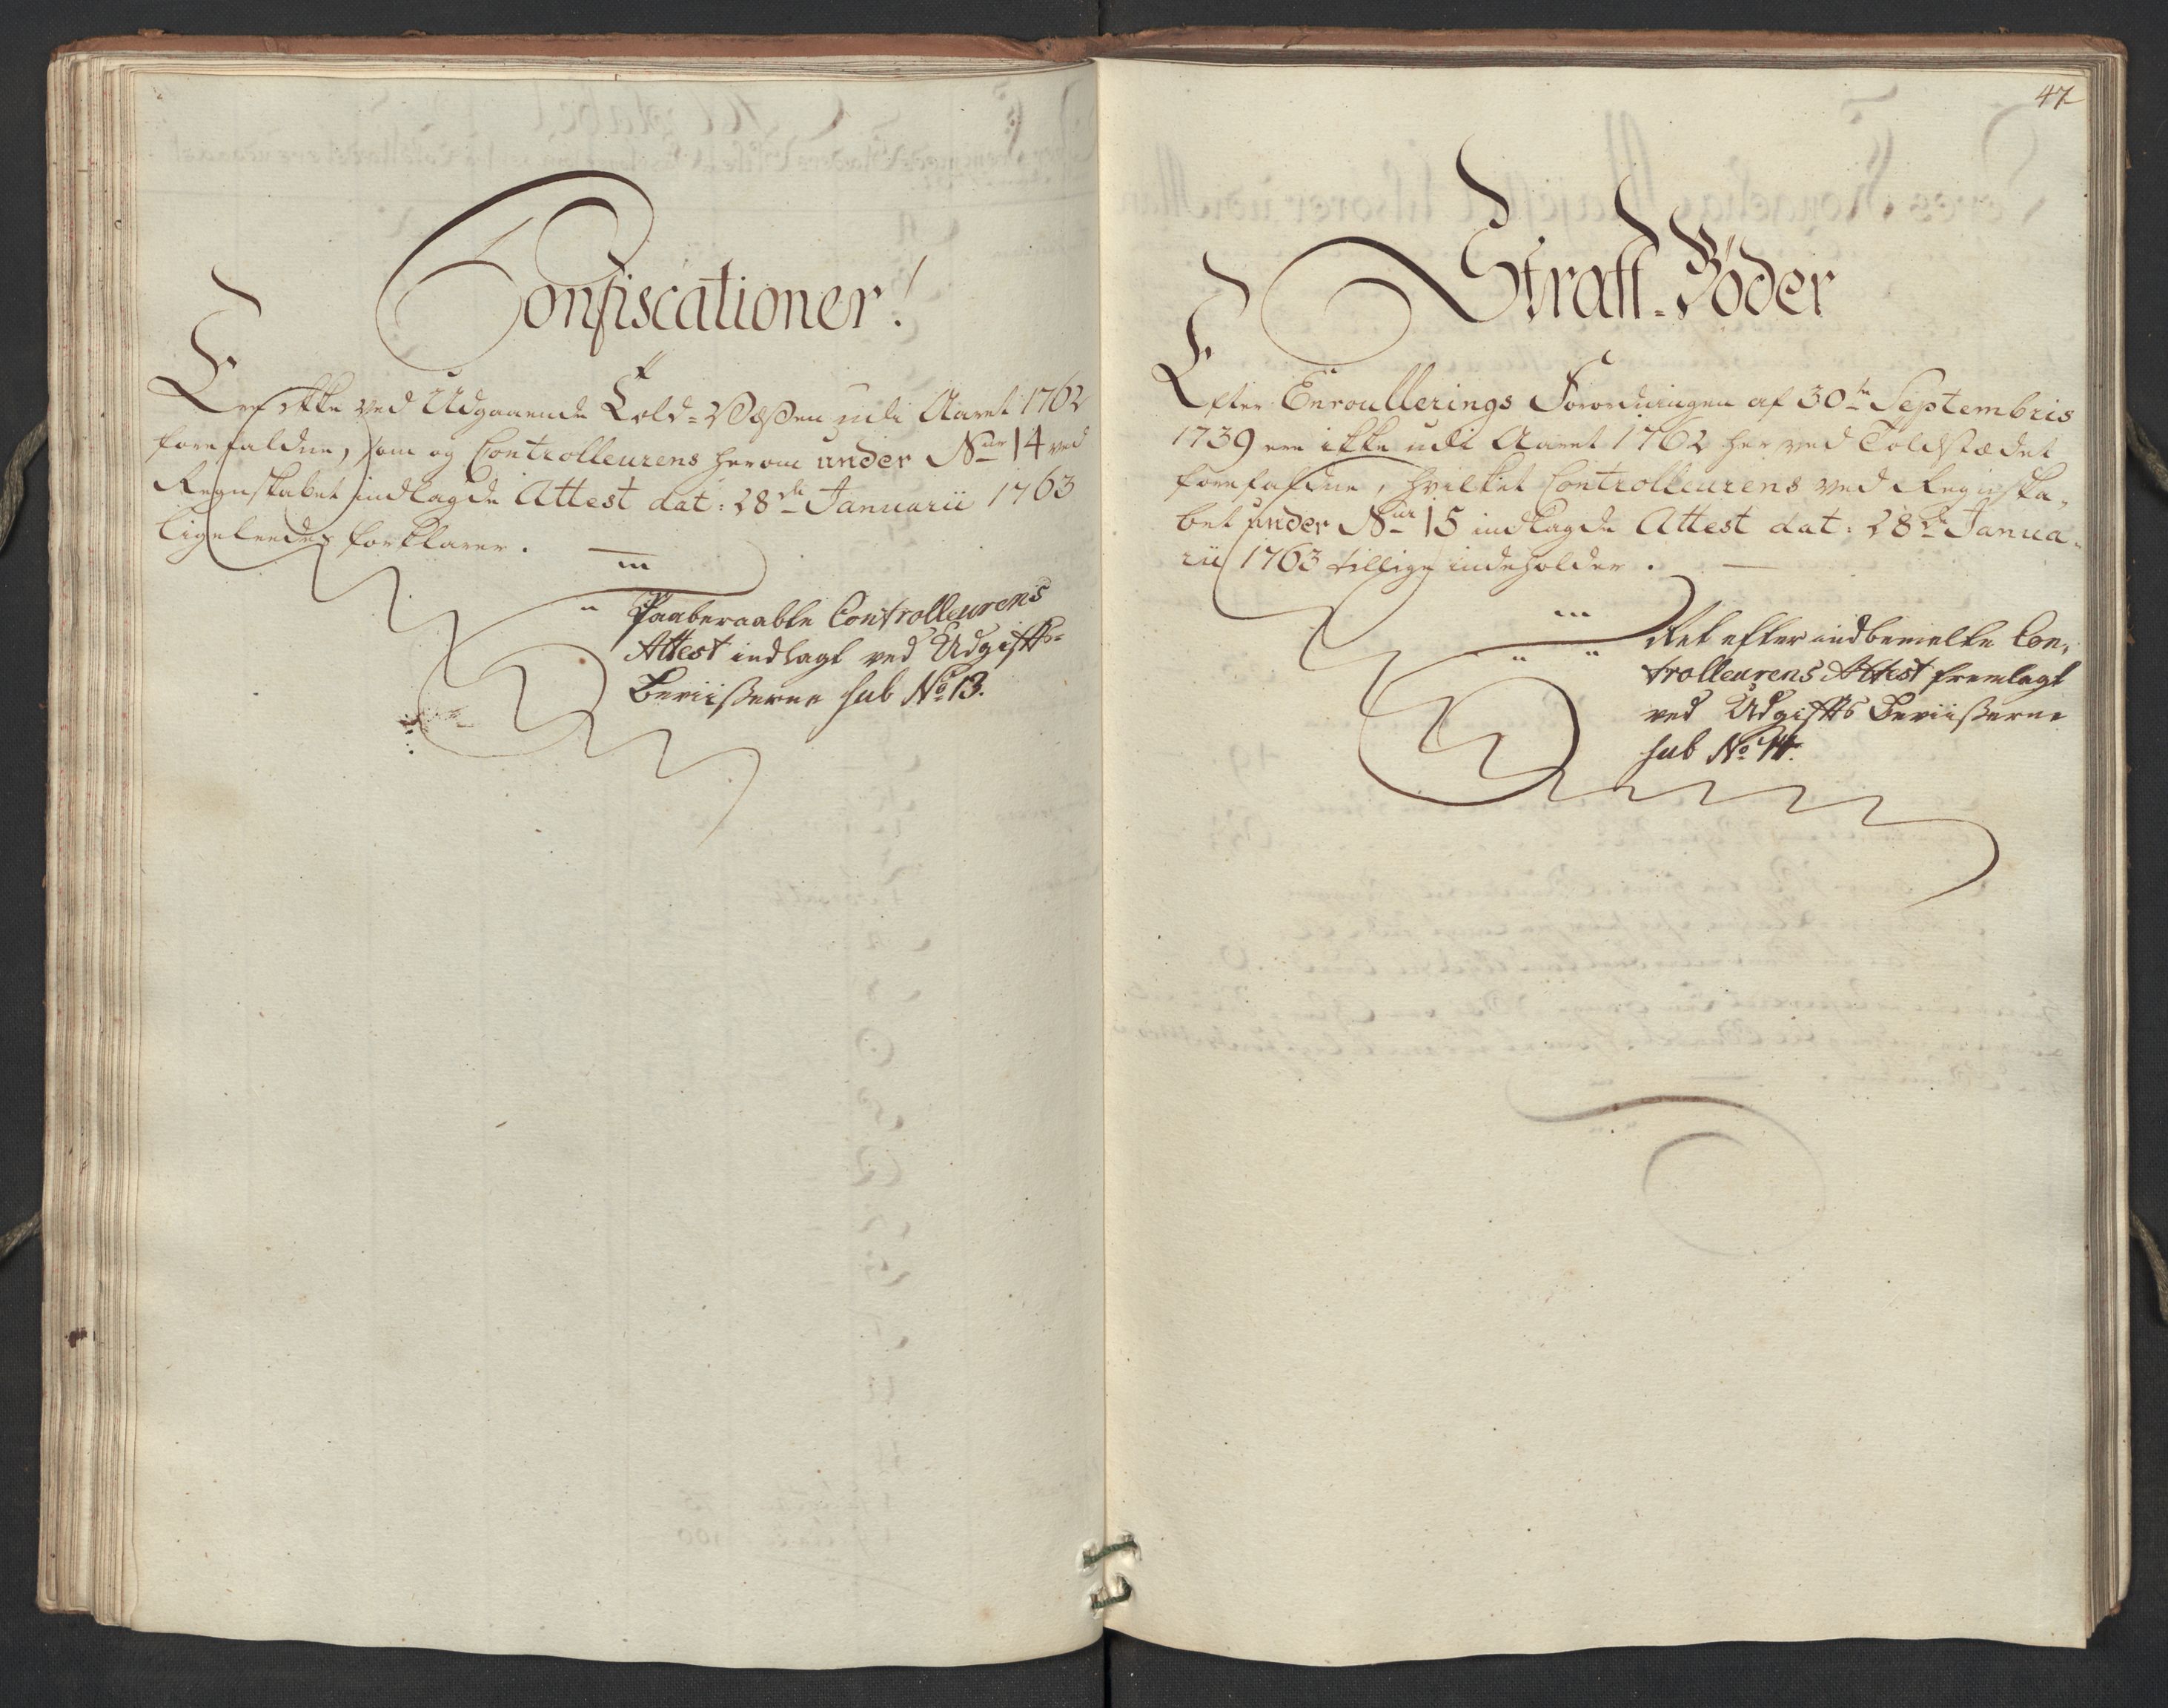 Confiscationer!
Er ikke ved Udgaaende Told-Væßen udi Aaret 1762
forefaldne, som og Controlleurens herom under Nur 14 ved
Regnskabet indlagde Attest dat: 28de Januarii 1763
ligeleedes forklarer.
Paaberaabte Controlleurens
Attest indlagt ved Udgiffts-
Beviißerne sub No 13.
47
Straff-Böder
Efter Enroullerings Forordningen af 30te Septembris
1739 ere ikke udi Aaret 1762 her ved Toldstædet
forefaldne, hvilket Controlleurens ved Regnska-
bet under Nur 15 indlagde Attest dat: 28de Janua-
rii 1763 tillige indeholder.
Ret efter indbemelte Con-
trolleurens Attest fremlagt
ved Udgiffts Beviißerne
sub No 14.